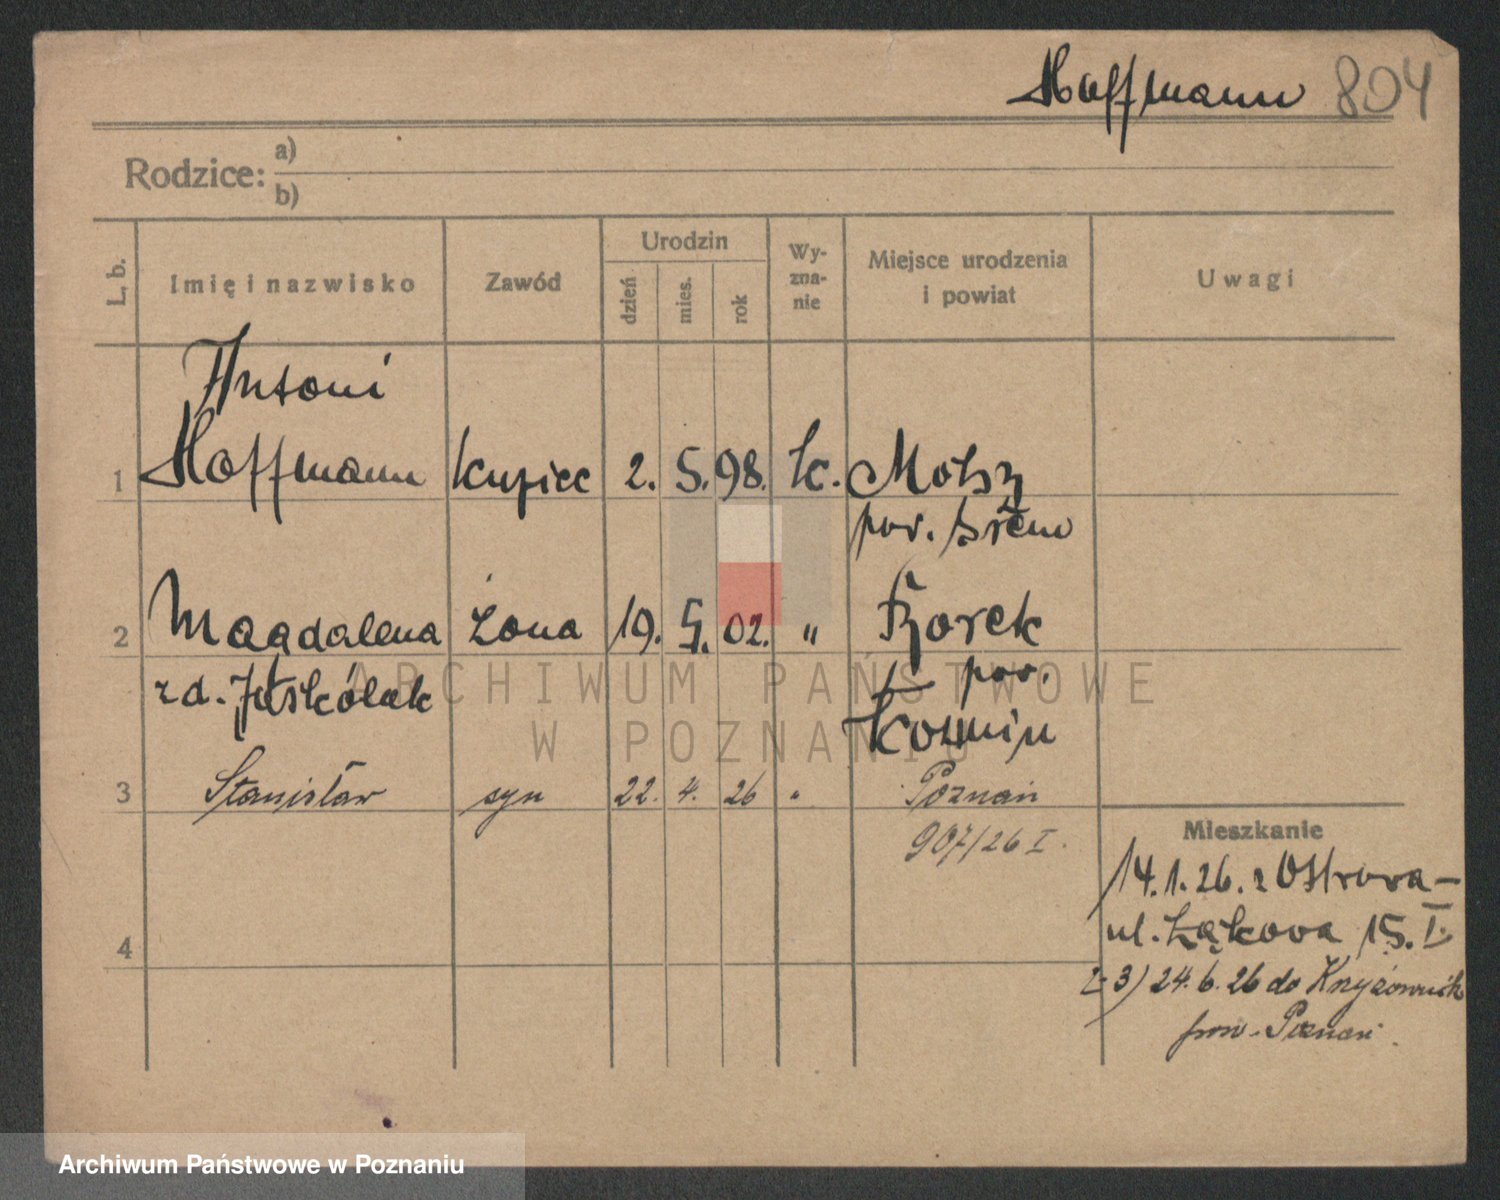 Hoffmann 804
Rodzice: a)
b)
L. b. Imię i nazwisko Zawód Urodzin dzień mies. rok Wy-zna-nie Miejsce urodzenia i powiat Uwagi
Antoni
1 Hoffmann kupiec 2. 5. 98. k.
pow. Śrem
2 Magdalena żona 19. 5. 02. " Borek
zd. Jaskólak pow.
Koźmin
3 Stanisław syn 22. 4. 26 " Poznań
907/26 I.
Mieszkanie
14.1.26. z Ostrowa –
ul. Łąkowa 15. I.
4
24.6.26 do Krzyżownik
pow. Poznań.
ARCHIWUM PAŃSTWOWE
W POZNANIU
Archiwum Państwowe w Poznaniu